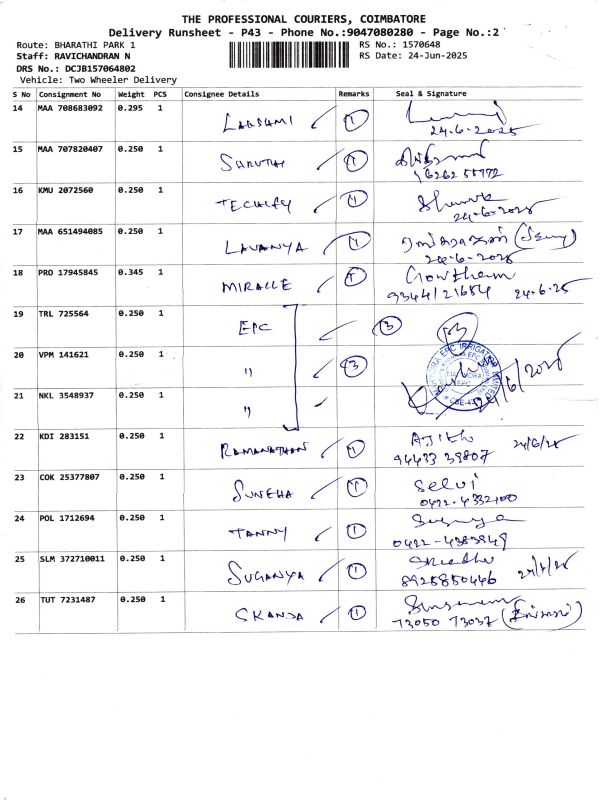 THE PROFESSIONAL COURIERS, COIMBATORE
Delivery Runsheet - P43 - Phone No.:9047080280 - Page No.:2
Route: BHARATHI PARK 1
RS No.: 1570648
Staff: RAVICHANDRAN N
RS Date: 24-Jun-2025
DRS No.: DCJB157064802
Vehicle: Two Wheeler Delivery
S No Consignment No Weight PCS Consignee Details Remarks Seal & Signature
14 MAA 708683092 0.295 1 LAKSHMI 1
24-6-2025
15 MAA 707820407 0.250 1 SHRUTHI 1
16 KMU 2072560 0.250 1 TECHIFY 1
24-6-2025
17 MAA 651494085 0.250 1 LAVANYA 1
24-6-2025
18 PRO 17945845 0.345 1 MIRACLE 1 Gowtham
24-6-25
19 TRL 725564 0.250 1 EPC 3
20 VPM 141621 0.250 1 " 3
21 NKL 3548937 0.250 1 "
24/6/2025
22 KDI 283151 0.250 1 RAMANATHAN 1 Ajith
94433 39807
23 COK 25377807 0.250 1 SUNEHA 1 Selvi
0422-4332100
24 POL 1712694 0.250 1 TANNY 1
0422-4383849
25 SLM 372710011 0.250 1 SUGANYA 1
8925850446
26 TUT 7231487 0.250 1 SKANDA 1
73050 73037